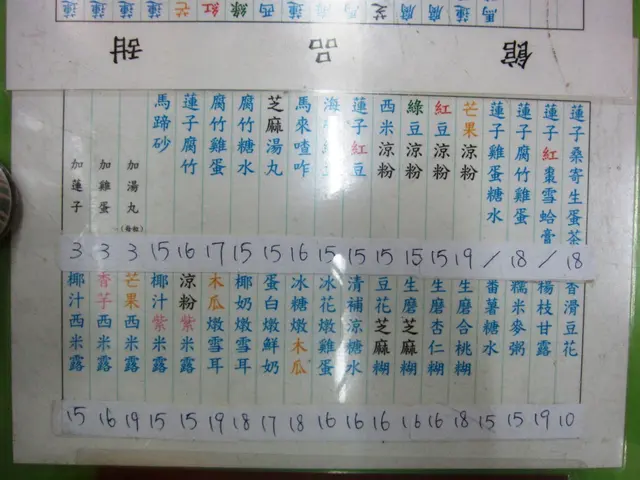 甜品館
蓮子桑寄生蛋茶 18
蓮子紅棗雪蛤膏 /
蓮子腐竹雞蛋 18
蓮子雞蛋糖水 /
芒果涼粉 19
紅豆涼粉 15
綠豆涼粉 15
西米涼粉 15
蓮子紅豆 15
海 15
馬來喳咋 16
芝麻湯丸 15
腐竹糖水 15
腐竹雞蛋 17
蓮子腐竹 16
馬蹄砂 15
加湯丸(每粒) 3
加雞蛋 3
加蓮子 3
香滑豆花 10
楊枝甘露 19
糯米麥粥 15
番薯糖水 15
生磨合桃糊 18
生磨杏仁糊 16
生磨芝麻糊 16
豆花芝麻糊 16
清補涼糖水 16
冰花燉雞蛋 16
冰糖燉木瓜 18
蛋白燉鮮奶 17
椰奶燉雪耳 18
木瓜燉雪耳 19
涼粉紫米露 15
椰汁紫米露 15
芒果西米露 19
香芋西米露 16
椰汁西米露 15